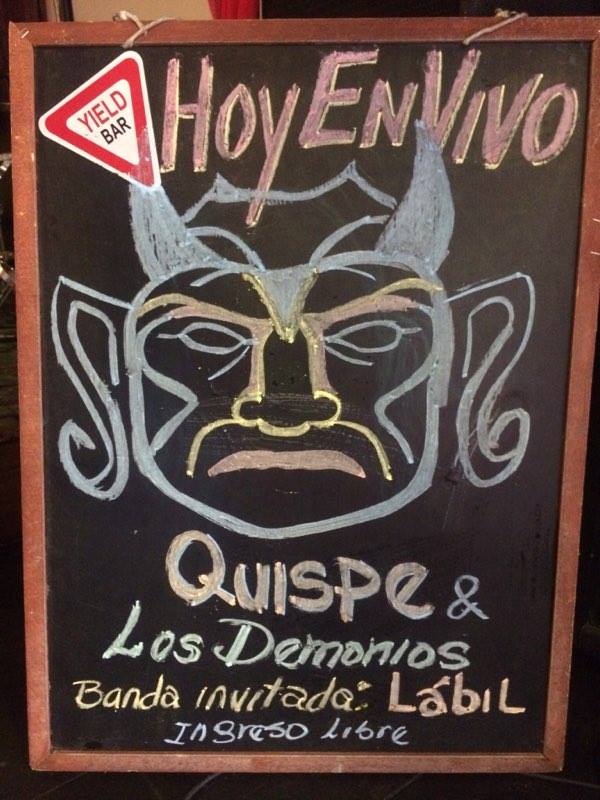 YIELD
BAR
HOY EN VIVO
QUISPE &
Los Demonios
Banda invitada: LábiL
Ingreso libre